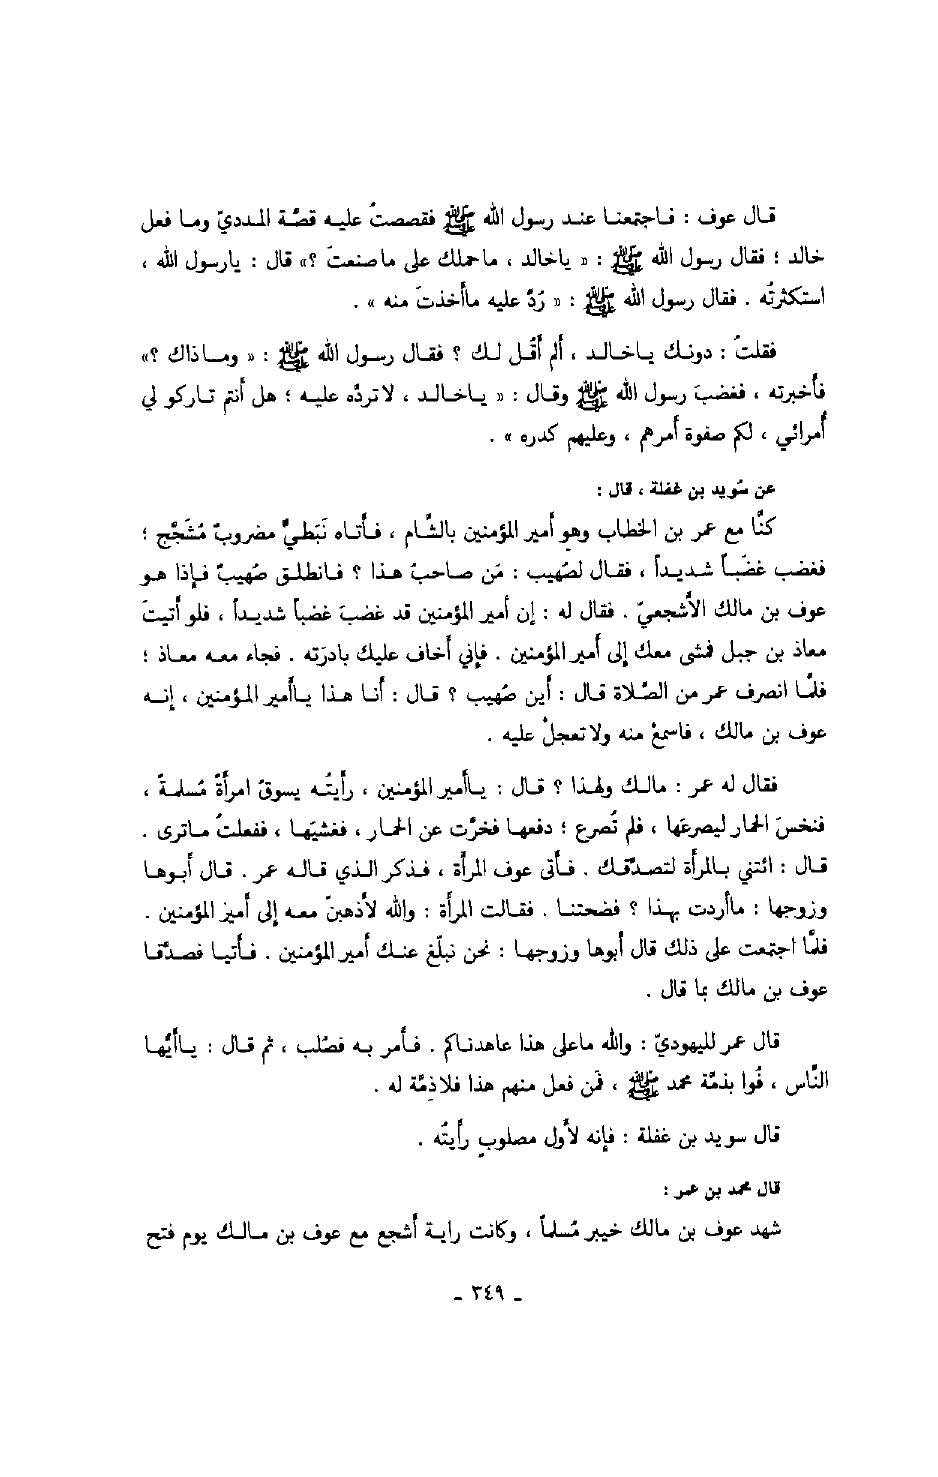 قال عوف : فاجتمعنا عند رسول الله ﷺ فقصصتُ عليه قصّة المدديّ وما فعل
خالد ؛ فقال رسول الله ﷺ : « ياخالد ، ماحملك على ماصنعتَ ؟» قال : يارسول الله ،
استكثرتُه . فقال رسول الله ﷺ : « رُدَّ عليه ماأخذتَ منه » .
فقلتُ : دونك ياخالد ، ألم أقُل لك ؟ فقال رسول الله ﷺ : « وماذاك ؟»
فأخبرته ، فغضبَ رسول الله ﷺ وقال : « ياخالد ، لاتردّه عليه ؛ هل أنتم تاركو لي
أُمرائي ، لكم صفوة أمرهم ، وعليهم كدره » .
عن سُويد بن غفلة ، قال :
كنَّا مع عمر بن الخطاب وهو أمير المؤمنين بالشَّام ، فأتاه نَبَطيٌّ مضروبٌ مُشَجَّج ؛
فغضب غضَباً شديداً ، فقال لصُهيب : مَن صاحبُ هذا ؟ فانطلق صُهيبٌ فإذا هو
عوف بن مالك الأشجعيّ . فقال له : إن أمير المؤمنين قد غضبَ غضباً شديداً ، فلو أتيتَ
معاذ بن جبل فمشى معك إلى أمير المؤمنين . فإني أخاف عليك بادرَته . فجاء معه معاذ ؛
فلمَّا انصرف عمر من الصَّلاة قال : أين صُهيب ؟ قال : أنا هذا ياأمير المؤمنين ، إنه
عوف بن مالك ، فاسمعْ منه ولاتعجلْ عليه .
فقال له عمر : مالك ولهذا ؟ قال : ياأمير المؤمنين ، رأيتُه يسوقُ امرأةً مُسلمةً ،
فنخسَ الحمار ليصرعَها ، فلم تُصرع ؛ دفعها فخرَّت عن الحمار ، فغشيَها ، ففعلتُ ماترى .
قال : ائتني بالمرأة لتصدّقك . فأتى عوف المرأة ، فذكر الذي قاله عمر . قال أبوها
وزوجها : ماأردت بهذا ؟ فضحتنا . فقالت المرأة : والله لأذهبنّ معه إلى أمير المؤمنين .
فلمَّا اجتمعت على ذلك قال أبوها وزوجها : نحن نبلّغ عنك أمير المؤمنين . فأتيا فصدّقا
عوف بن مالك بما قال .
قال عمر لليهوديّ : والله ماعلى هذا عاهدناكم . فأمر به فصُلب ، ثم قال : ياأيُّها
النَّاس ، فُوا بذمَّة محمد ﷺ ، فَمن فعل منهم هذا فلاذمَّة له .
قال سويد بن غفلة : فإنه لأول مصلوبٍ رأيتُه .
قال محمد بن عمر :
شهد عوف بن مالك خيبر مُسلماً ، وكانت راية أشجع مع عوف بن مالك يوم فتح
ـ ٣٤٩ ـ